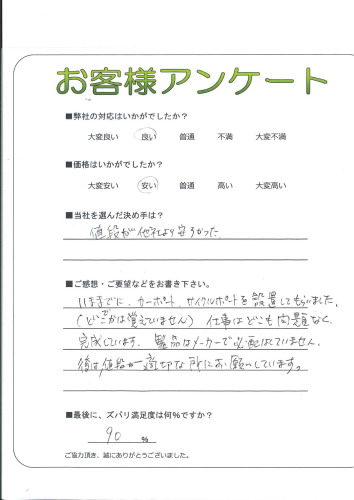 お客様アンケート
■弊社の対応はいかがでしたか?
大変良い 良い 普通 不満 大変不満
■価格はいかがでしたか?
大変安い 安い 普通 高い 大変高い
■当社を選んだ決め手は?
値段が他社より安かった
■ご感想・ご要望などをお書き下さい。
いままでに、カーポート、サイクルポートを設置してもらいました。
(どこかは覚えていません) 仕事はどこも問題なく、
完成しています。製品はメーカーで心配はしていません、
後は値段が適切な所にお願いしています。
■最後に、ズバリ満足度は何%ですか?
90 %
ご協力頂き、誠にありがとうございました。